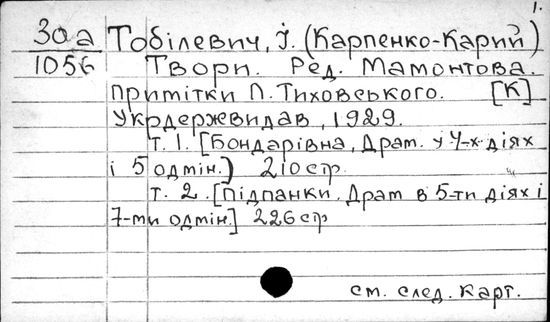 1.
30а Тобілевич, І. (Карпенко-Карий)
1056 Твори. Ред. Мамонтова.
Примітки П. Тиховського. [К]
Укрдержвидав, 1929.
т. 1. [Бондарівна, Драт. у 4-х діях
і 5 одмін.) 210 стр
т. 2. [Підпанки. Драт в 5-ти діях і
7-ми одмін.] 226 стр
см. след. карт.